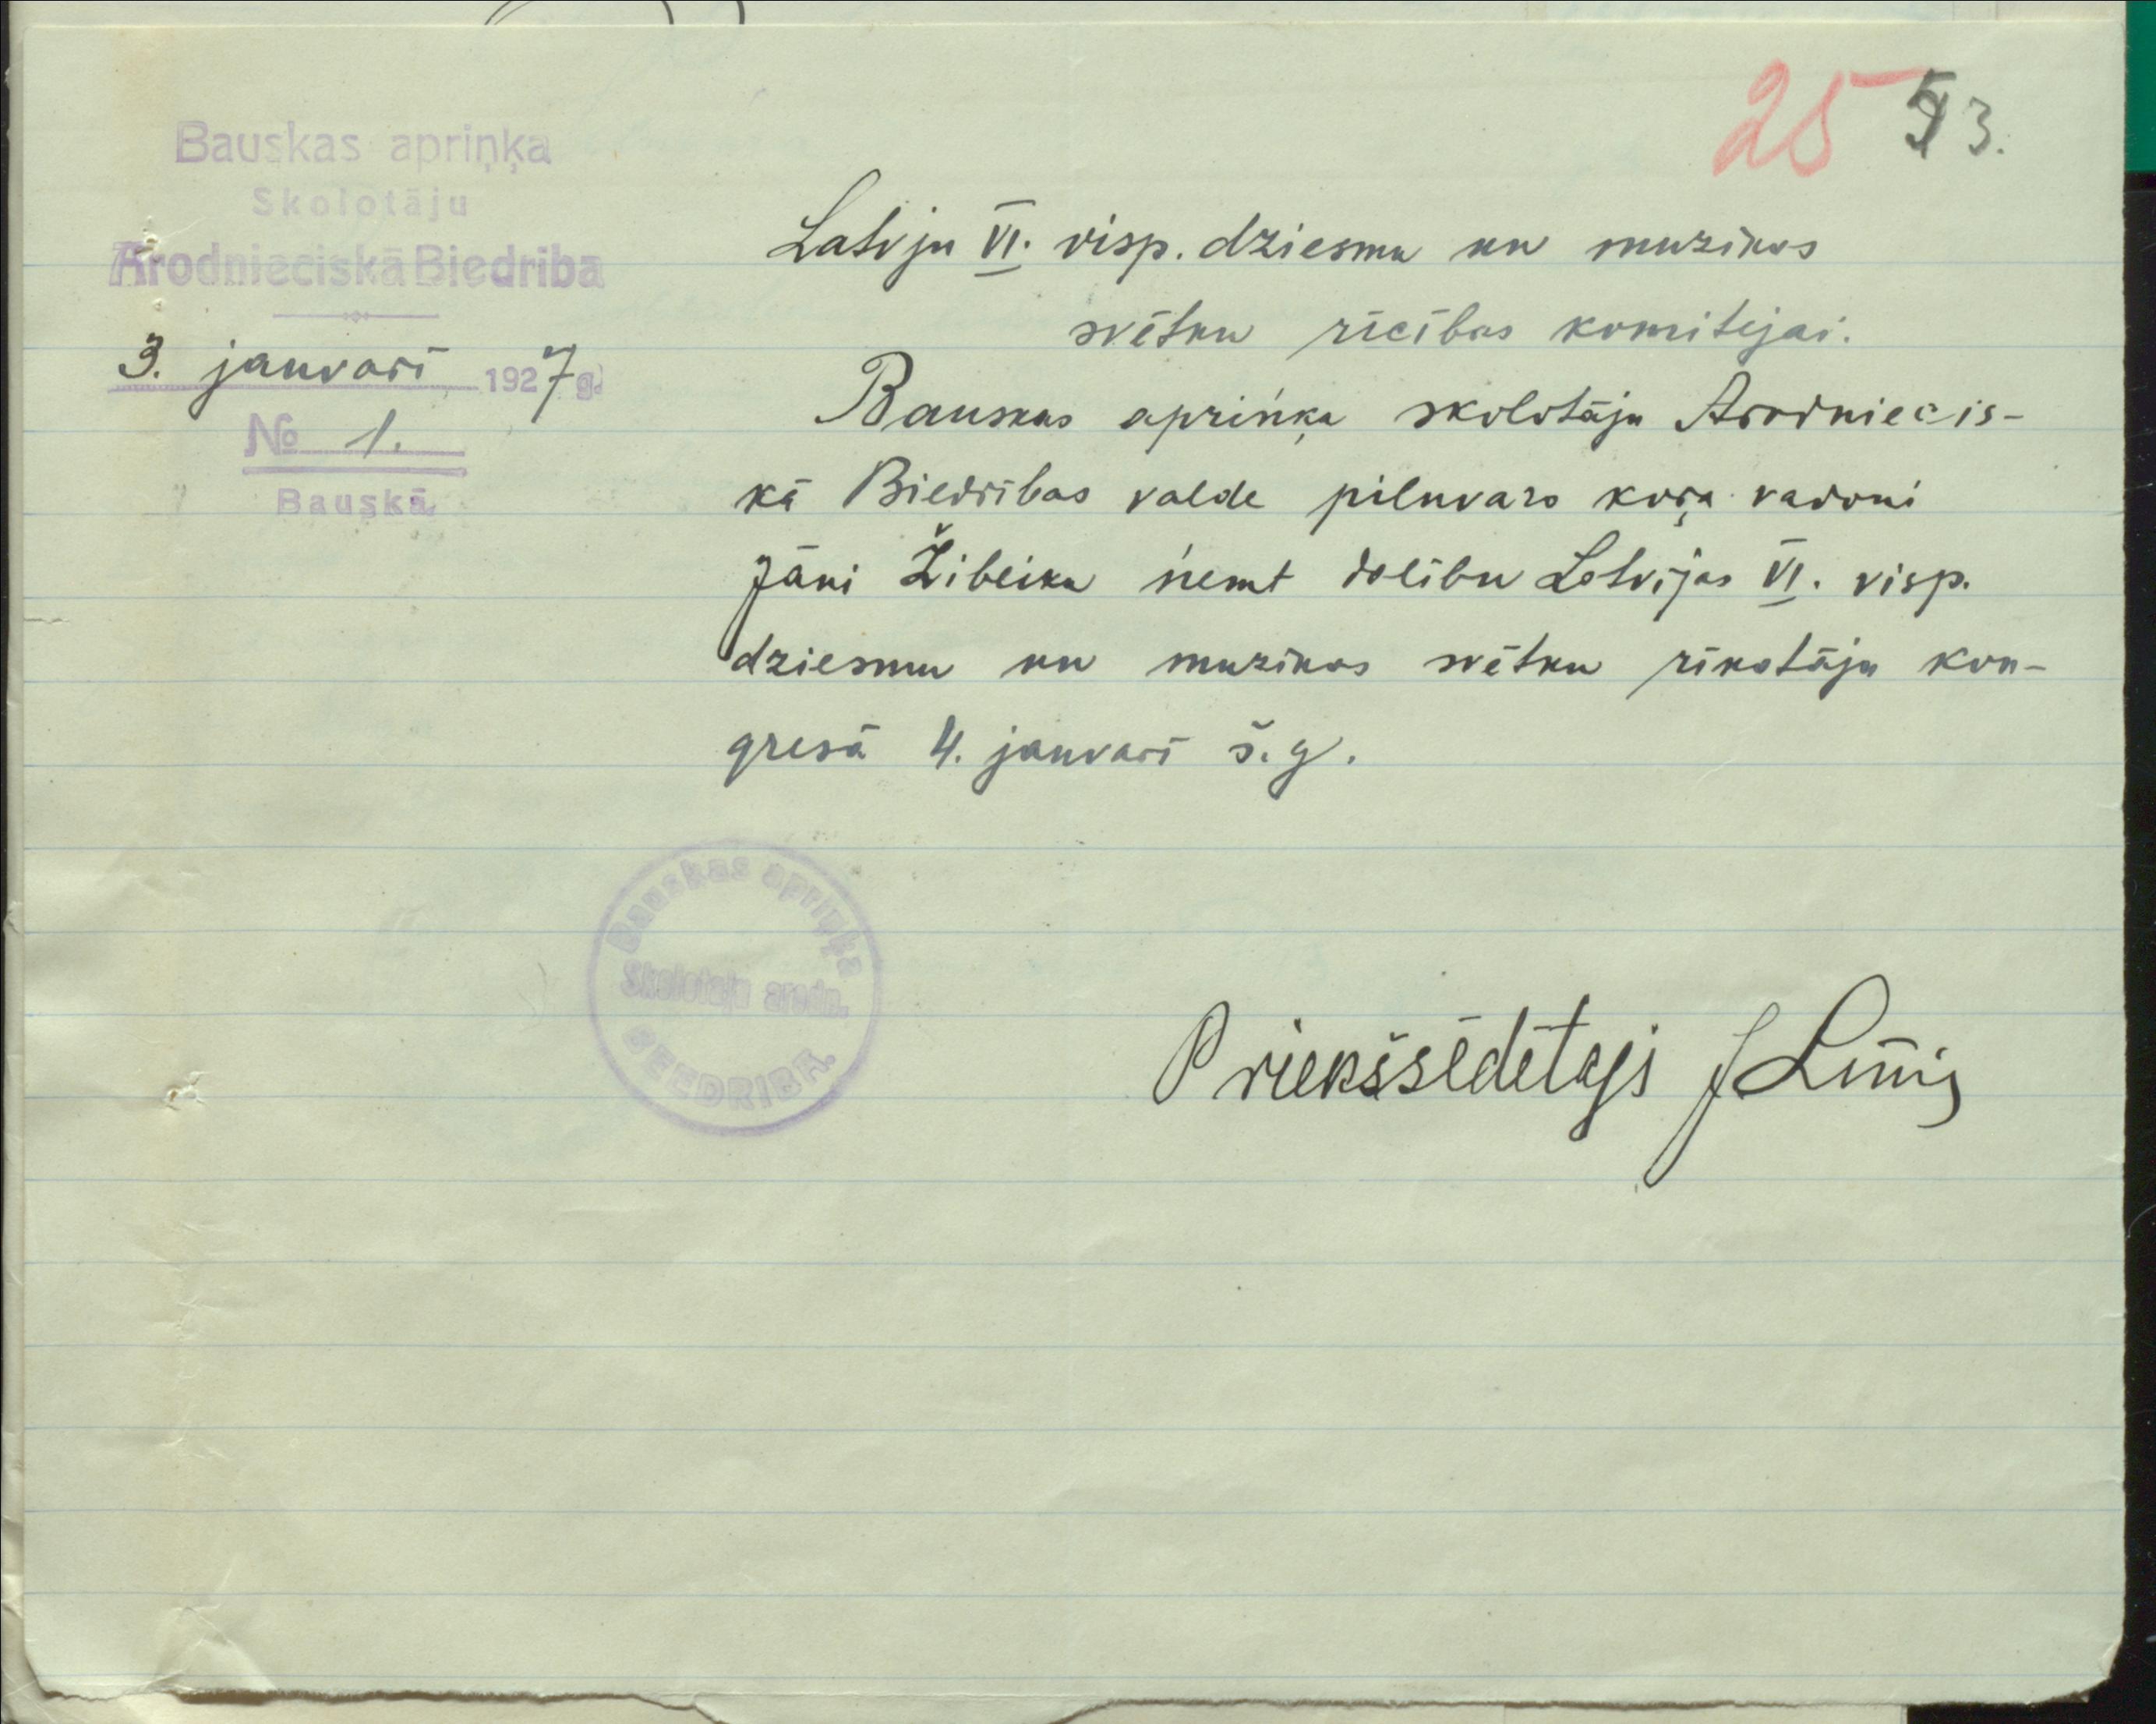 25 53.
Bauskas apriņķa
Skolotāju
Arodnieciskā Biedrība
3. janvarī 1927 g.
№ 1.
Bauskā
Latvju VI. visp. dziesmu un muzikas
svētku rīcības komitejai.
Bauskas apriņķa skolotāju Arodniecis-
kā Biedrības valde pilnvaro koŗa vadoni
Jāni Žibeiku ņemt dalību Latvijas VI. visp.
dziesmu un muzikas svētku rīkotāju kon-
gresā 4. janvarī š. g.
Bauskas apriņķa
Skolotāju arodn.
BEEDRIBA.
Priekšsēdētājs J